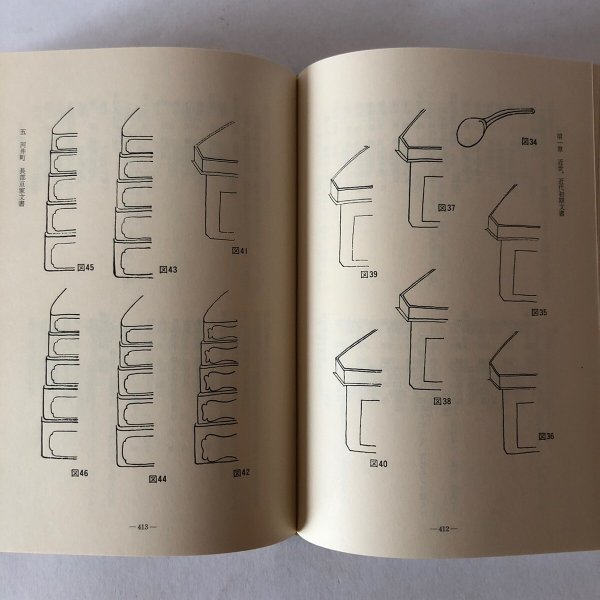 第一章 近世、近代初期文書
図34
図35
図36
図37
図38
図39
図40
—412—
図41
図42
図43
図44
図45
図46
五 河井町 長部亘家文書
—413—